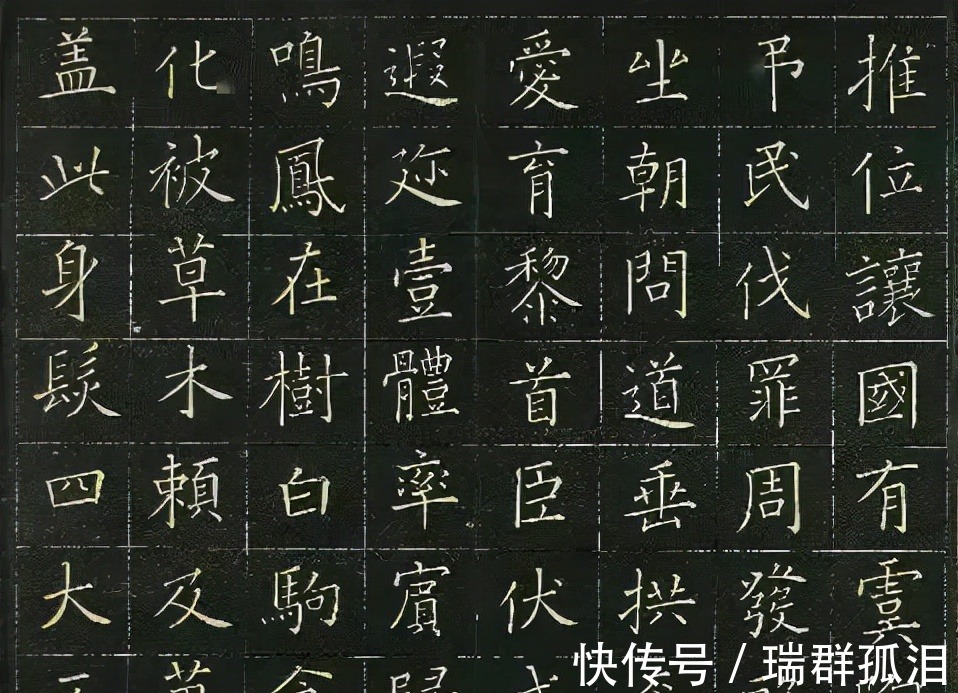 推位讓國有虞
吊民伐罪周發
坐朝問道垂拱
愛育黎首臣伏
遐迩壹體率賓
鳴鳳在樹白駒
化被草木賴及
盖此身髮四大
快传号 / 瑞群孤泪